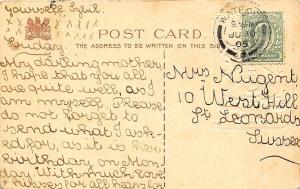 yourself. Sybil
x x x x x
x x x x
POST CARD.
THE ADDRESS TO BE WRITTEN ON THIS SIDE
Friday.
My darling mother,
I hope that you all
are quite well, as I
am myself. Please
do not forget to
send what I ask-
ed for, as it is her
birthday on Mon
day With much love
kisses for all
Mrs Nugent
10 West Hill
St Leonards
Sussex
05